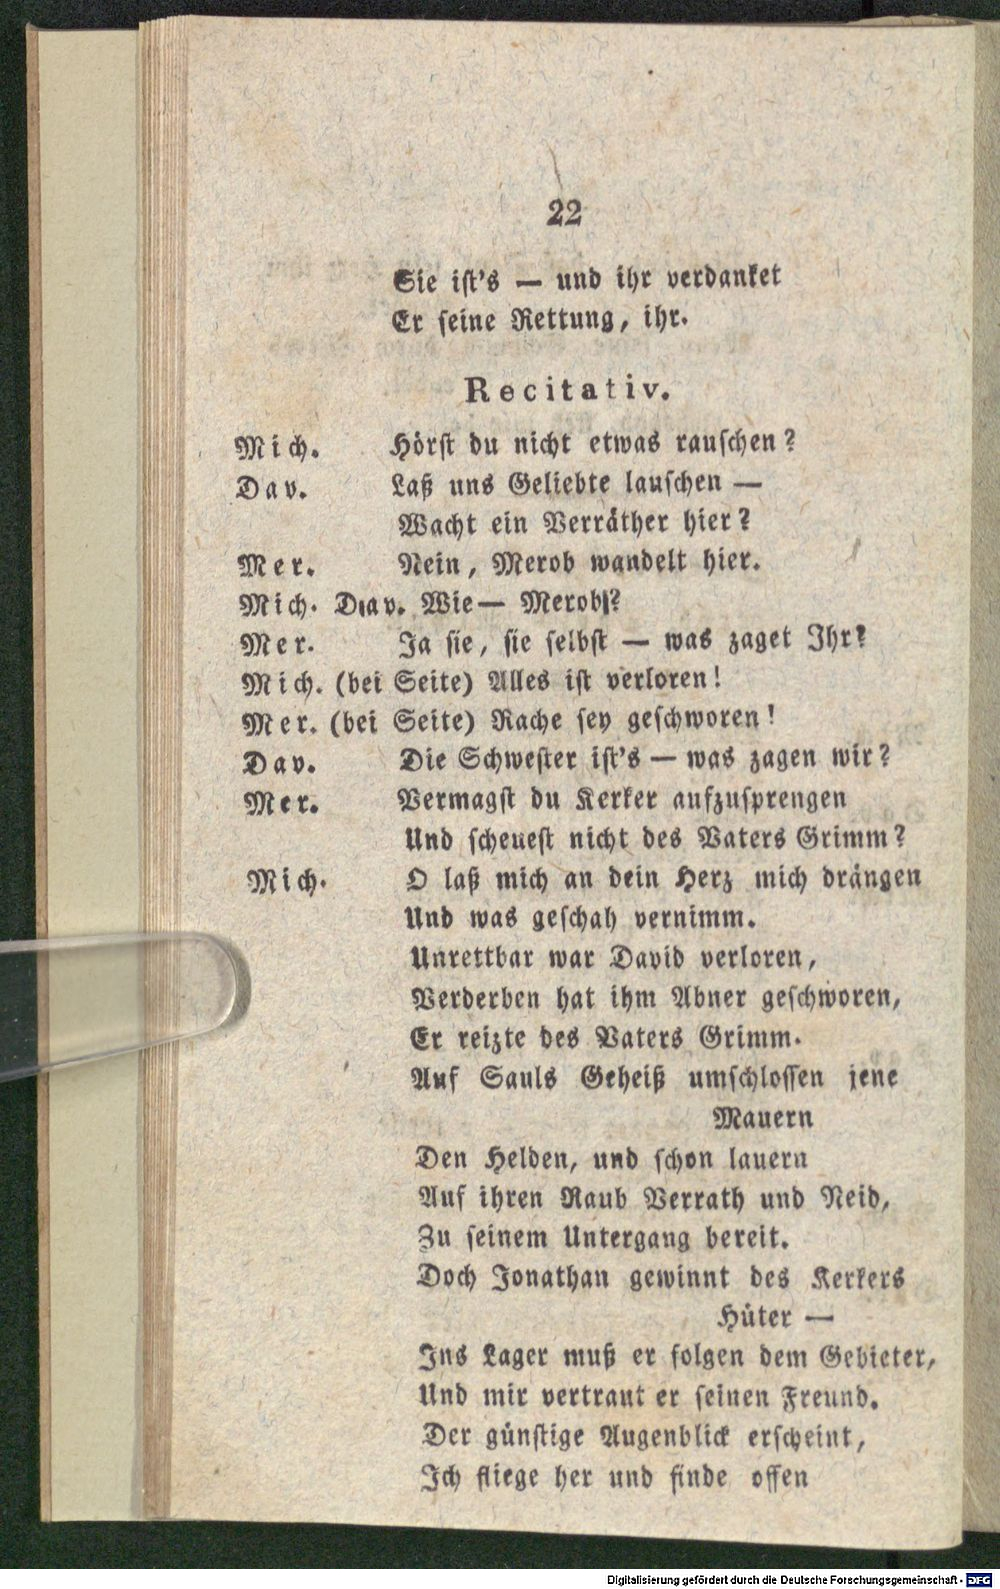 22
Sie ist's — und ihr verdanket
Er seine Rettung, ihr.
Recitativ.
Mich. Hörst du nicht etwas rauschen?
Dav. Laß uns Geliebte lauschen —
Wacht ein Verräther hier?
Mer. Nein, Merob wandelt hier.
Mich. Dav. Wie— Merob?
Mer. Ja sie, sie selbst — was zaget Ihr?
Mich. (bei Seite) Alles ist verloren!
Mer. (bei Seite) Rache sey geschworen!
Dav. Die Schwester ist's — was zagen wir?
Mer. Vermagst du Kerker aufzusprengen
Und scheuest nicht des Vaters Grimm?
Mich. O laß mich an dein Herz mich drängen
Und was geschah vernimm.
Unrettbar war David verloren,
Verderben hat ihm Abner geschworen,
Er reizte des Vaters Grimm.
Auf Sauls Geheiß umschlossen jene
Mauern
Den Helden, und schon lauern
Auf ihren Raub Verrath und Neid,
Zu seinem Untergang bereit.
Doch Jonathan gewinnt des Kerkers
Hüter —
Ins Lager muß er folgen dem Gebieter,
Und mir vertraut er seinen Freund.
Der günstige Augenblick erscheint,
Ich fliege her und finde offen
Digitalisierung gefördert durch die Deutsche Forschungsgemeinschaft - DFG